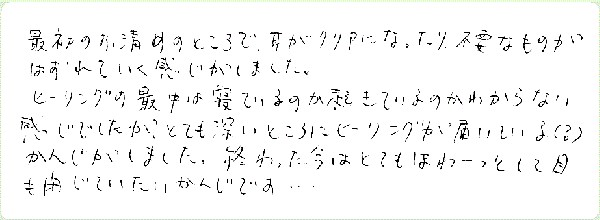 最初のお清めのところで、耳がクリアになったり、不要なものが
はずれていく感じがしました。
ヒーリングの最中は寝ているのか起きているのかわからない
感じでしたが、とても深いところにヒーリングが届いている(?)
かんじがしました。終わった今はとてもほわーっとして目
も閉じていたいかんじです…